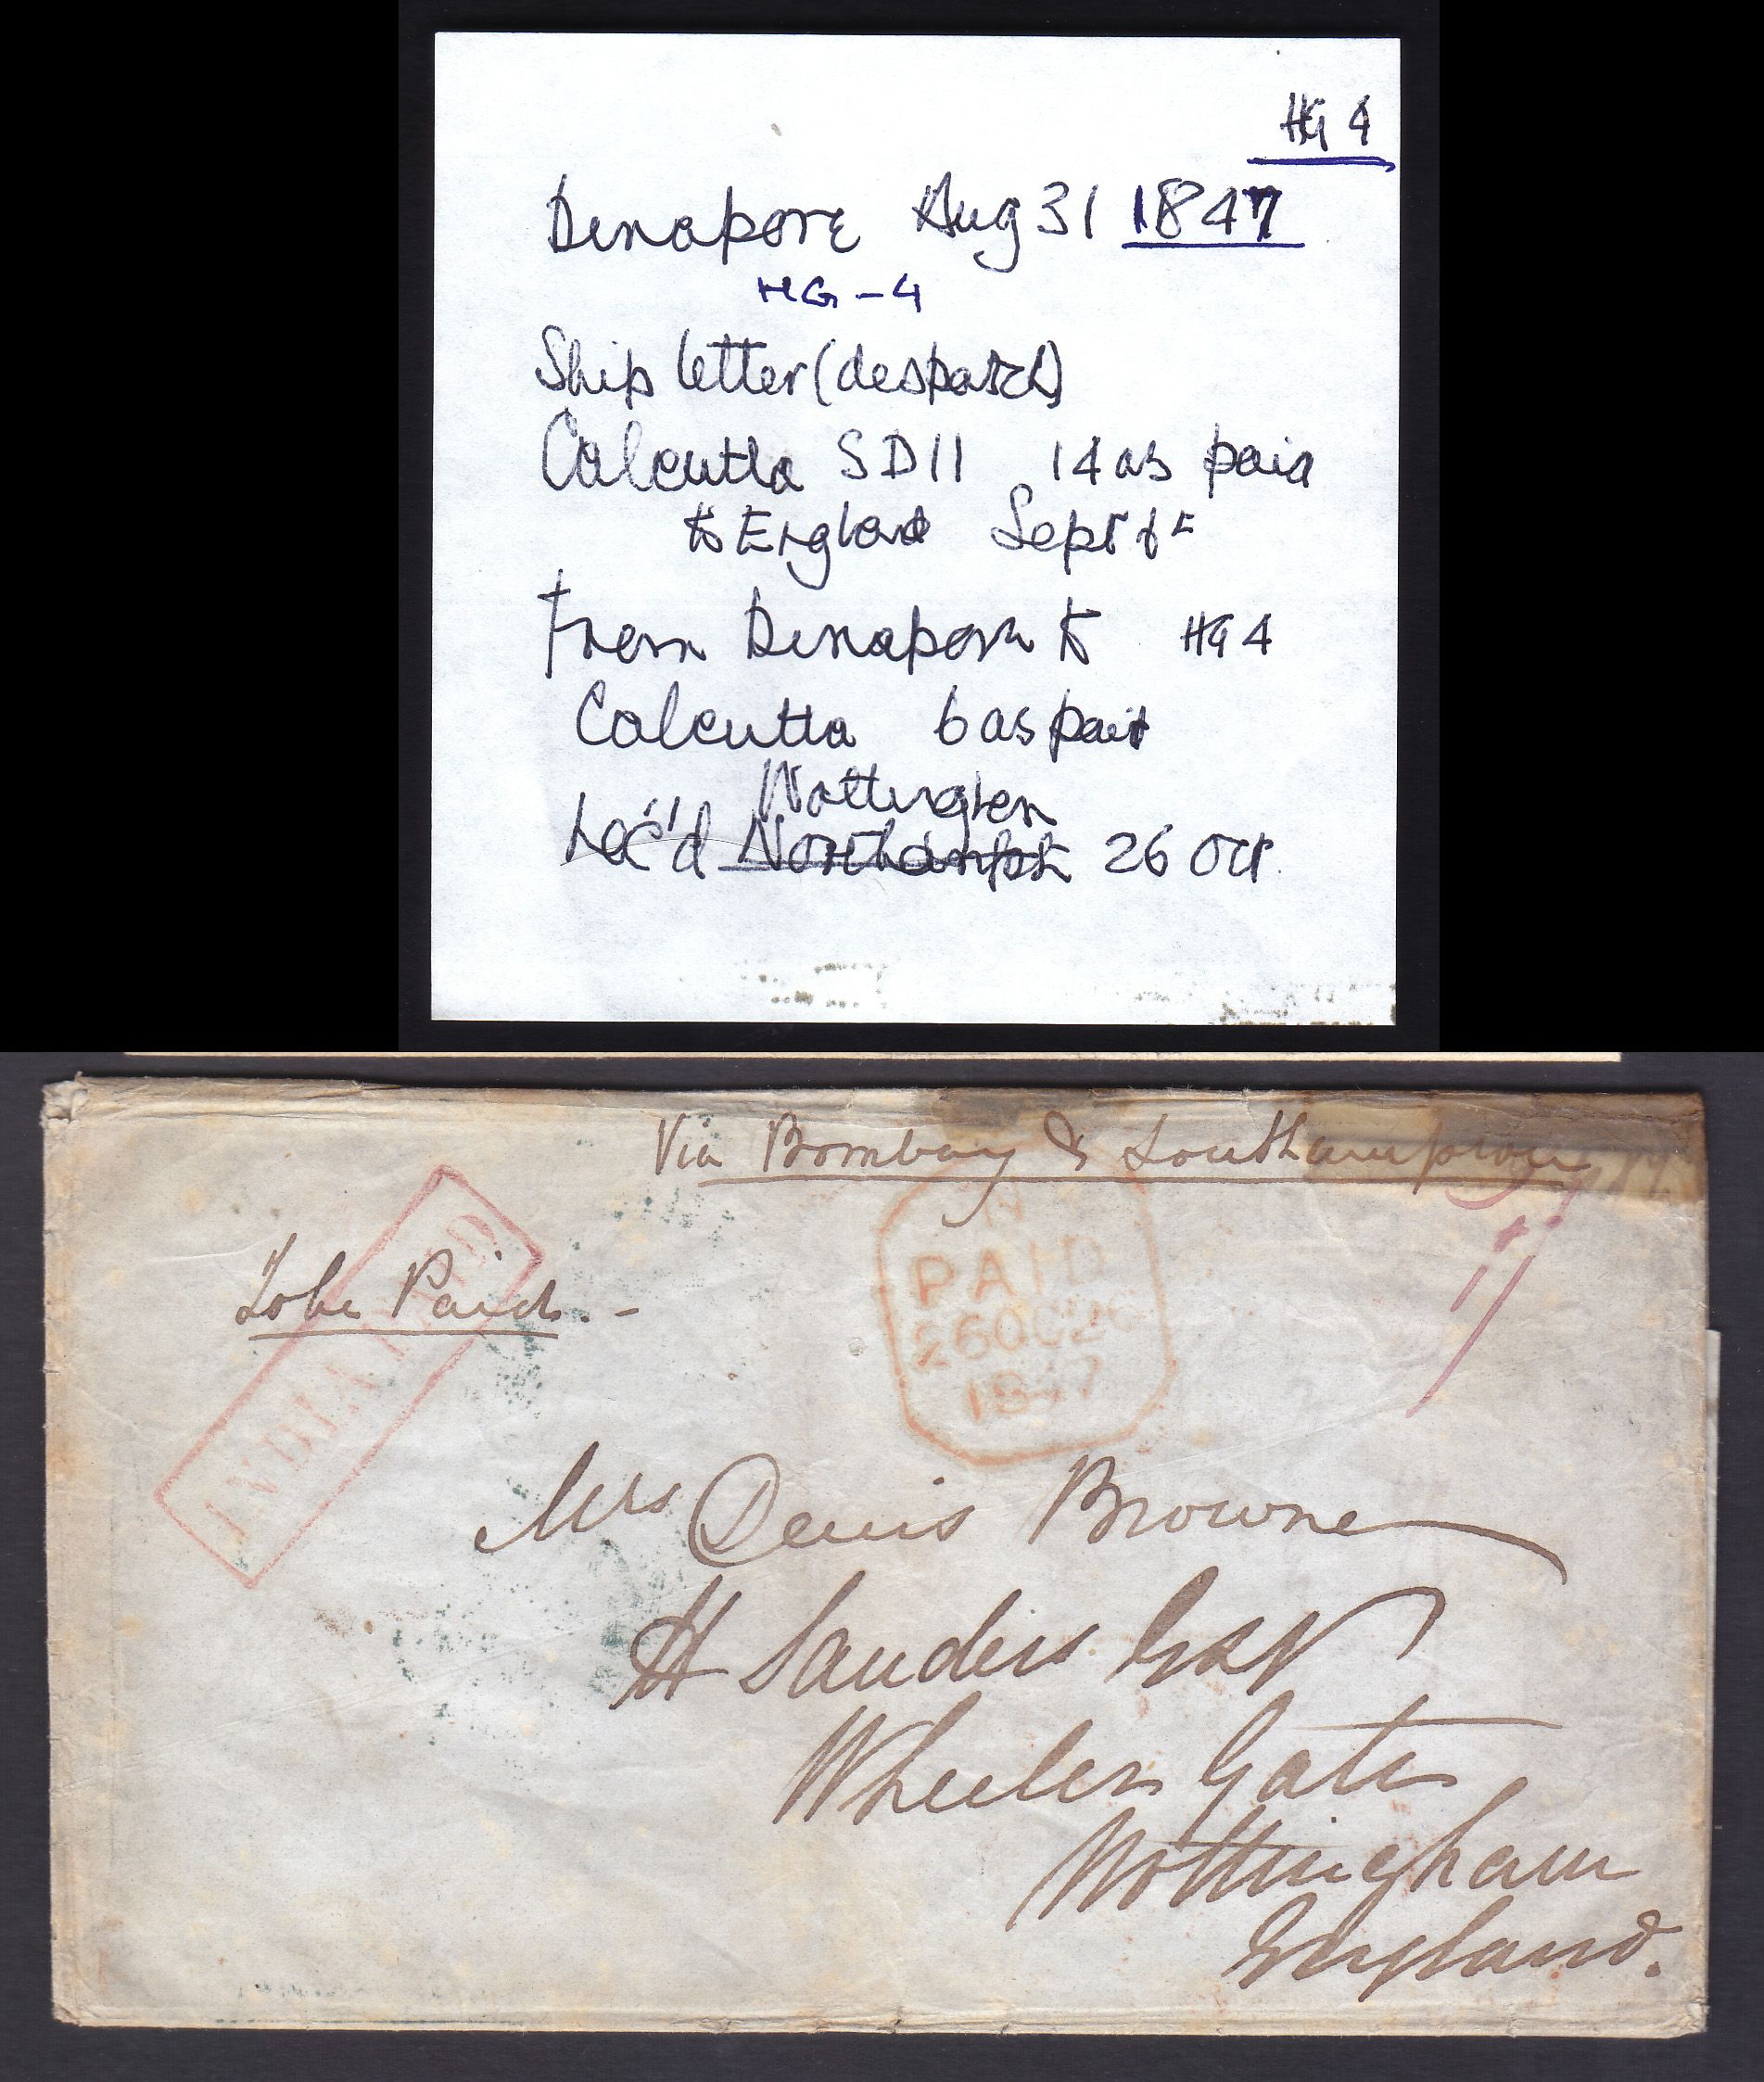 HG 4
Dinapore Aug 31 1847
HG - 4
Ship letter (despatch)
Calcutta SD11 14 as paid
to England Sept
From Dinapore to HG 4
Calcutta 6 as paid
Nottingham
Rec'd 26 Oct.
Via Bombay & Southampton
To be Paid. -
INDIA PAID
PAID
26 OC 26
1847
1/
Mrs Denis Browne
H Sanders Esqr
Wheeler Gate
Nottingham
England.